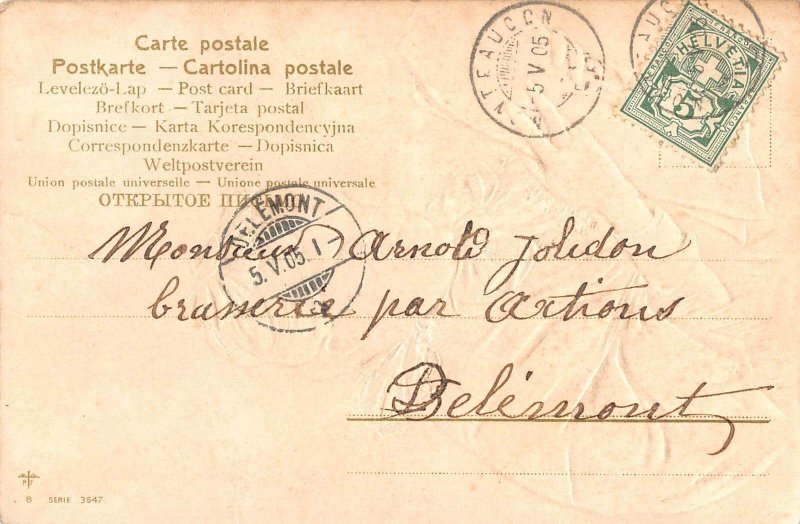 Carte postale
Postkarte — Cartolina postale
Levelező-Lap — Post card — Briefkaart
Brefkort — Tarjeta postal
Dopisnice — Karta Korespondencyjna
Correspondenzkarte — Dopisnica
Weltpostverein
Union postale universelle — Unione postale universale
ОТКРЫТОЕ
NTEAUCON
-5 V 05
AUCON
HELVETIA
5
DELÉMONT
5. V. 05. I
Monsieur Arnold
brasserie par Actions
Delémont
8 SERIE 3647